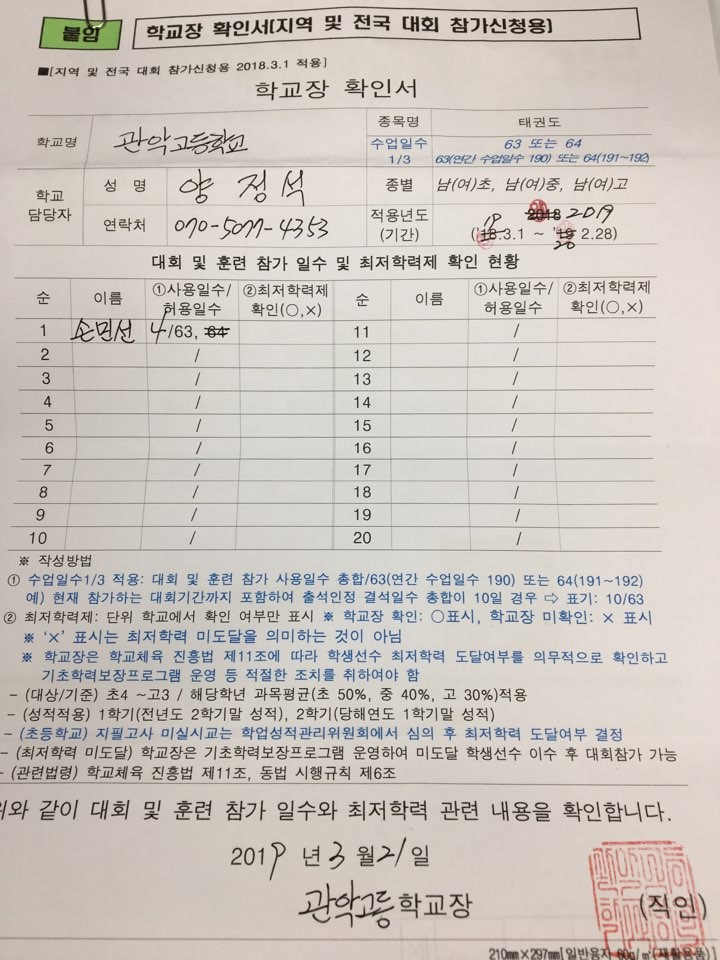 붙임 학교장 확인서(지역 및 전국 대회 참가신청용)
■[지역 및 전국 대회 참가신청용 2018.3.1 적용]
학교장 확인서
학교명 관악고등학교 종목명 태권도
수업일수 1/3 63 또는 64
63(연간 수업일수 190) 또는 64(191~192)
학교 담당자 성 명 양 정 석 종별 남(여)초, 남(여)중, 남(여)고
연락처 070-5077-4353 적용년도 (기간) 2018 2019
19
('18.3.1 ~ '19 2.28)
20
대회 및 훈련 참가 일수 및 최저학력제 확인 현황
순 이름 ①사용일수/허용일수 ②최저학력제 확인(○,×) 순 이름 ①사용일수/허용일수 ②최저학력제 확인(○,×)
1 손민선 4/63, 64 11 /
2 / 12 /
3 / 13 /
4 / 14 /
5 / 15 /
6 / 16 /
7 / 17 /
8 / 18 /
9 / 19 /
10 / 20 /
※ 작성방법
① 수업일수1/3 적용: 대회 및 훈련 참가 사용일수 총합/63(연간 수업일수 190) 또는 64(191~192)
예) 현재 참가하는 대회기간까지 포함하여 출석인정 결석일수 총합이 10일 경우 ⇨ 표기: 10/63
② 최저학력제: 단위 학교에서 확인 여부만 표시 ※ 학교장 확인: ○표시, 학교장 미확인: × 표시
※ '×' 표시는 최저학력 미도달을 의미하는 것이 아님
※ 학교장은 학교체육 진흥법 제11조에 따라 학생선수 최저학력 도달여부를 의무적으로 확인하고
기초학력보장프로그램 운영 등 적절한 조치를 취하여야 함
- (대상/기준) 초4 ~고3 / 해당학년 과목평균(초 50%, 중 40%, 고 30%)적용
- (성적적용) 1학기(전년도 2학기말 성적), 2학기(당해연도 1학기말 성적)
- (초등학교) 지필고사 미실시교는 학업성적관리위원회에서 심의 후 최저학력 도달여부 결정
- (최저학력 미도달) 학교장은 기초학력보장프로그램 운영하여 미도달 학생선수 이수 후 대회참가 가능
- (관련법령) 학교체육 진흥법 제11조, 동법 시행규칙 제6조
위와 같이 대회 및 훈련 참가 일수와 최저학력 관련 내용을 확인합니다.
2019 년 3 월 21 일
관악고등 학교장 (직인)
210mm×297mm[일반용지 60g/㎡(재활용품)]